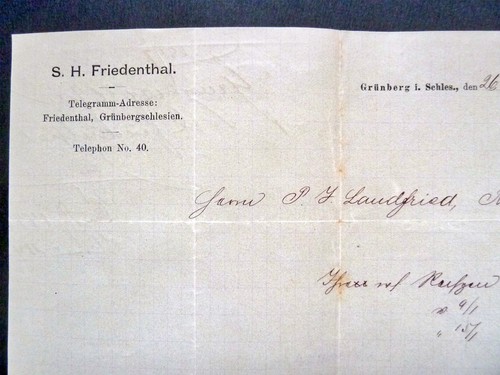 S. H. Friedenthal.
Telegramm-Adresse:
Friedenthal, Grünbergschlesien.
Telephon No. 40.
Grünberg i. Schles., den 26
Herrn P. J. Landfried,
9/1
" 15/1